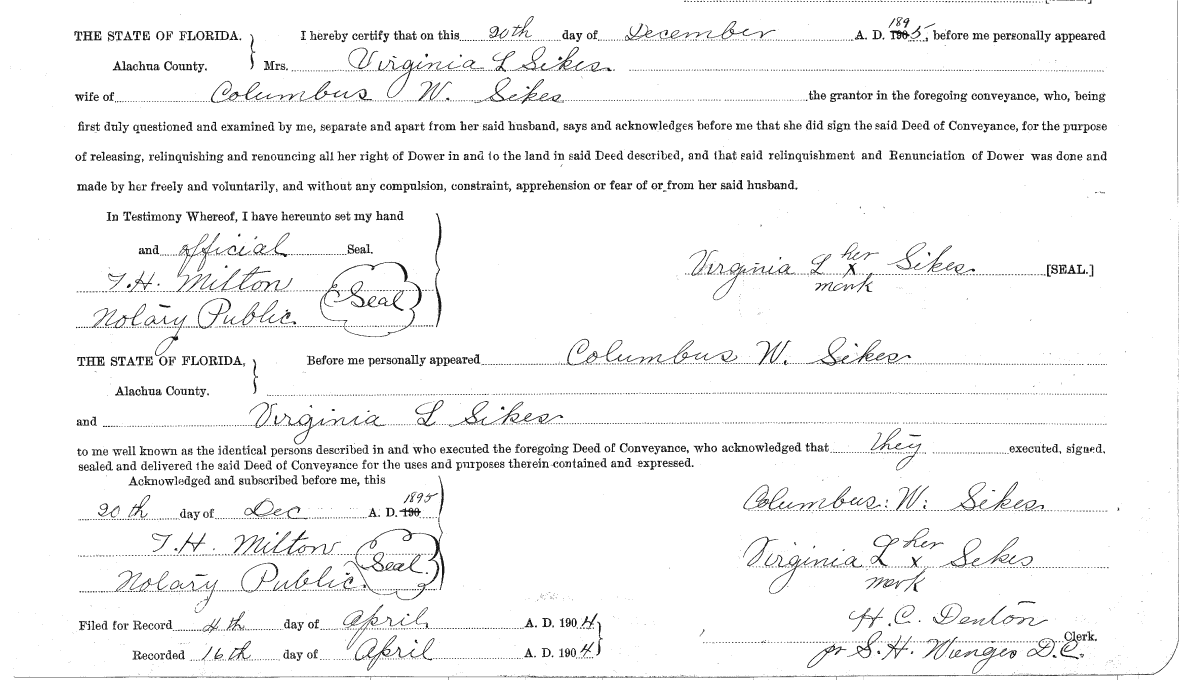 [SEAL.]
THE STATE OF FLORIDA. } I hereby certify that on this 20th day of December A. D. 190 1895, before me personally appeared
Alachua County. Mrs. Virginia L Sikes
wife of Columbus W. Sikes the grantor in the foregoing conveyance, who, being
first duly questioned and examined by me, separate and apart from her said husband, says and acknowledges before me that she did sign the said Deed of Conveyance, for the purpose
of releasing, relinquishing and renouncing all her right of Dower in and to the land in said Deed described, and that said relinquishment and Renunciation of Dower was done and
made by her freely and voluntarily, and without any compulsion, constraint, apprehension or fear of or from her said husband.
In Testimony Whereof, I have hereunto set my hand
and official Seal.
T.H. Milton
Notary Public (Seal)
Virginia L her x mark Sikes [SEAL.]
THE STATE OF FLORIDA, } Before me personally appeared Columbus W. Sikes
Alachua County.
and Virginia L Sikes
to me well known as the identical persons described in and who executed the foregoing Deed of Conveyance, who acknowledged that they executed, signed,
sealed and delivered the said Deed of Conveyance for the uses and purposes therein contained and expressed.
Acknowledged and subscribed before me, this
20th day of Dec A. D. 190 1895
T.H. Milton
Notary Public. (Seal.)
Columbus: W: Sikes
Virginia L her x mark Sikes
Filed for Record 4th day of April A. D. 1904
Recorded 16th day of April A. D. 1904
H. C. Denton Clerk.
pr S. H. Wienges D.C.